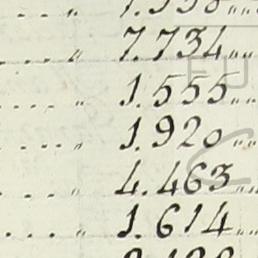 . . . „ 7.734 „ „
. . . „ 1.555 „ „
. . . . „ 1.920 „ „
. . . „ 4.463 „ „
. . . . „ 1.614 „ „